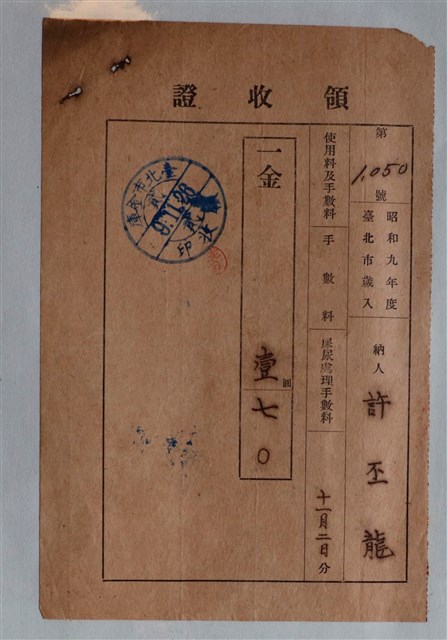 領收證
第1,050號
昭和九年度
臺北市歲入
納人 許丕龍
使用料及手數料
手數料
屎尿處理手數料
十一月二日分
一金 壹圓七〇
臺北市金庫
9.11.26
收
印